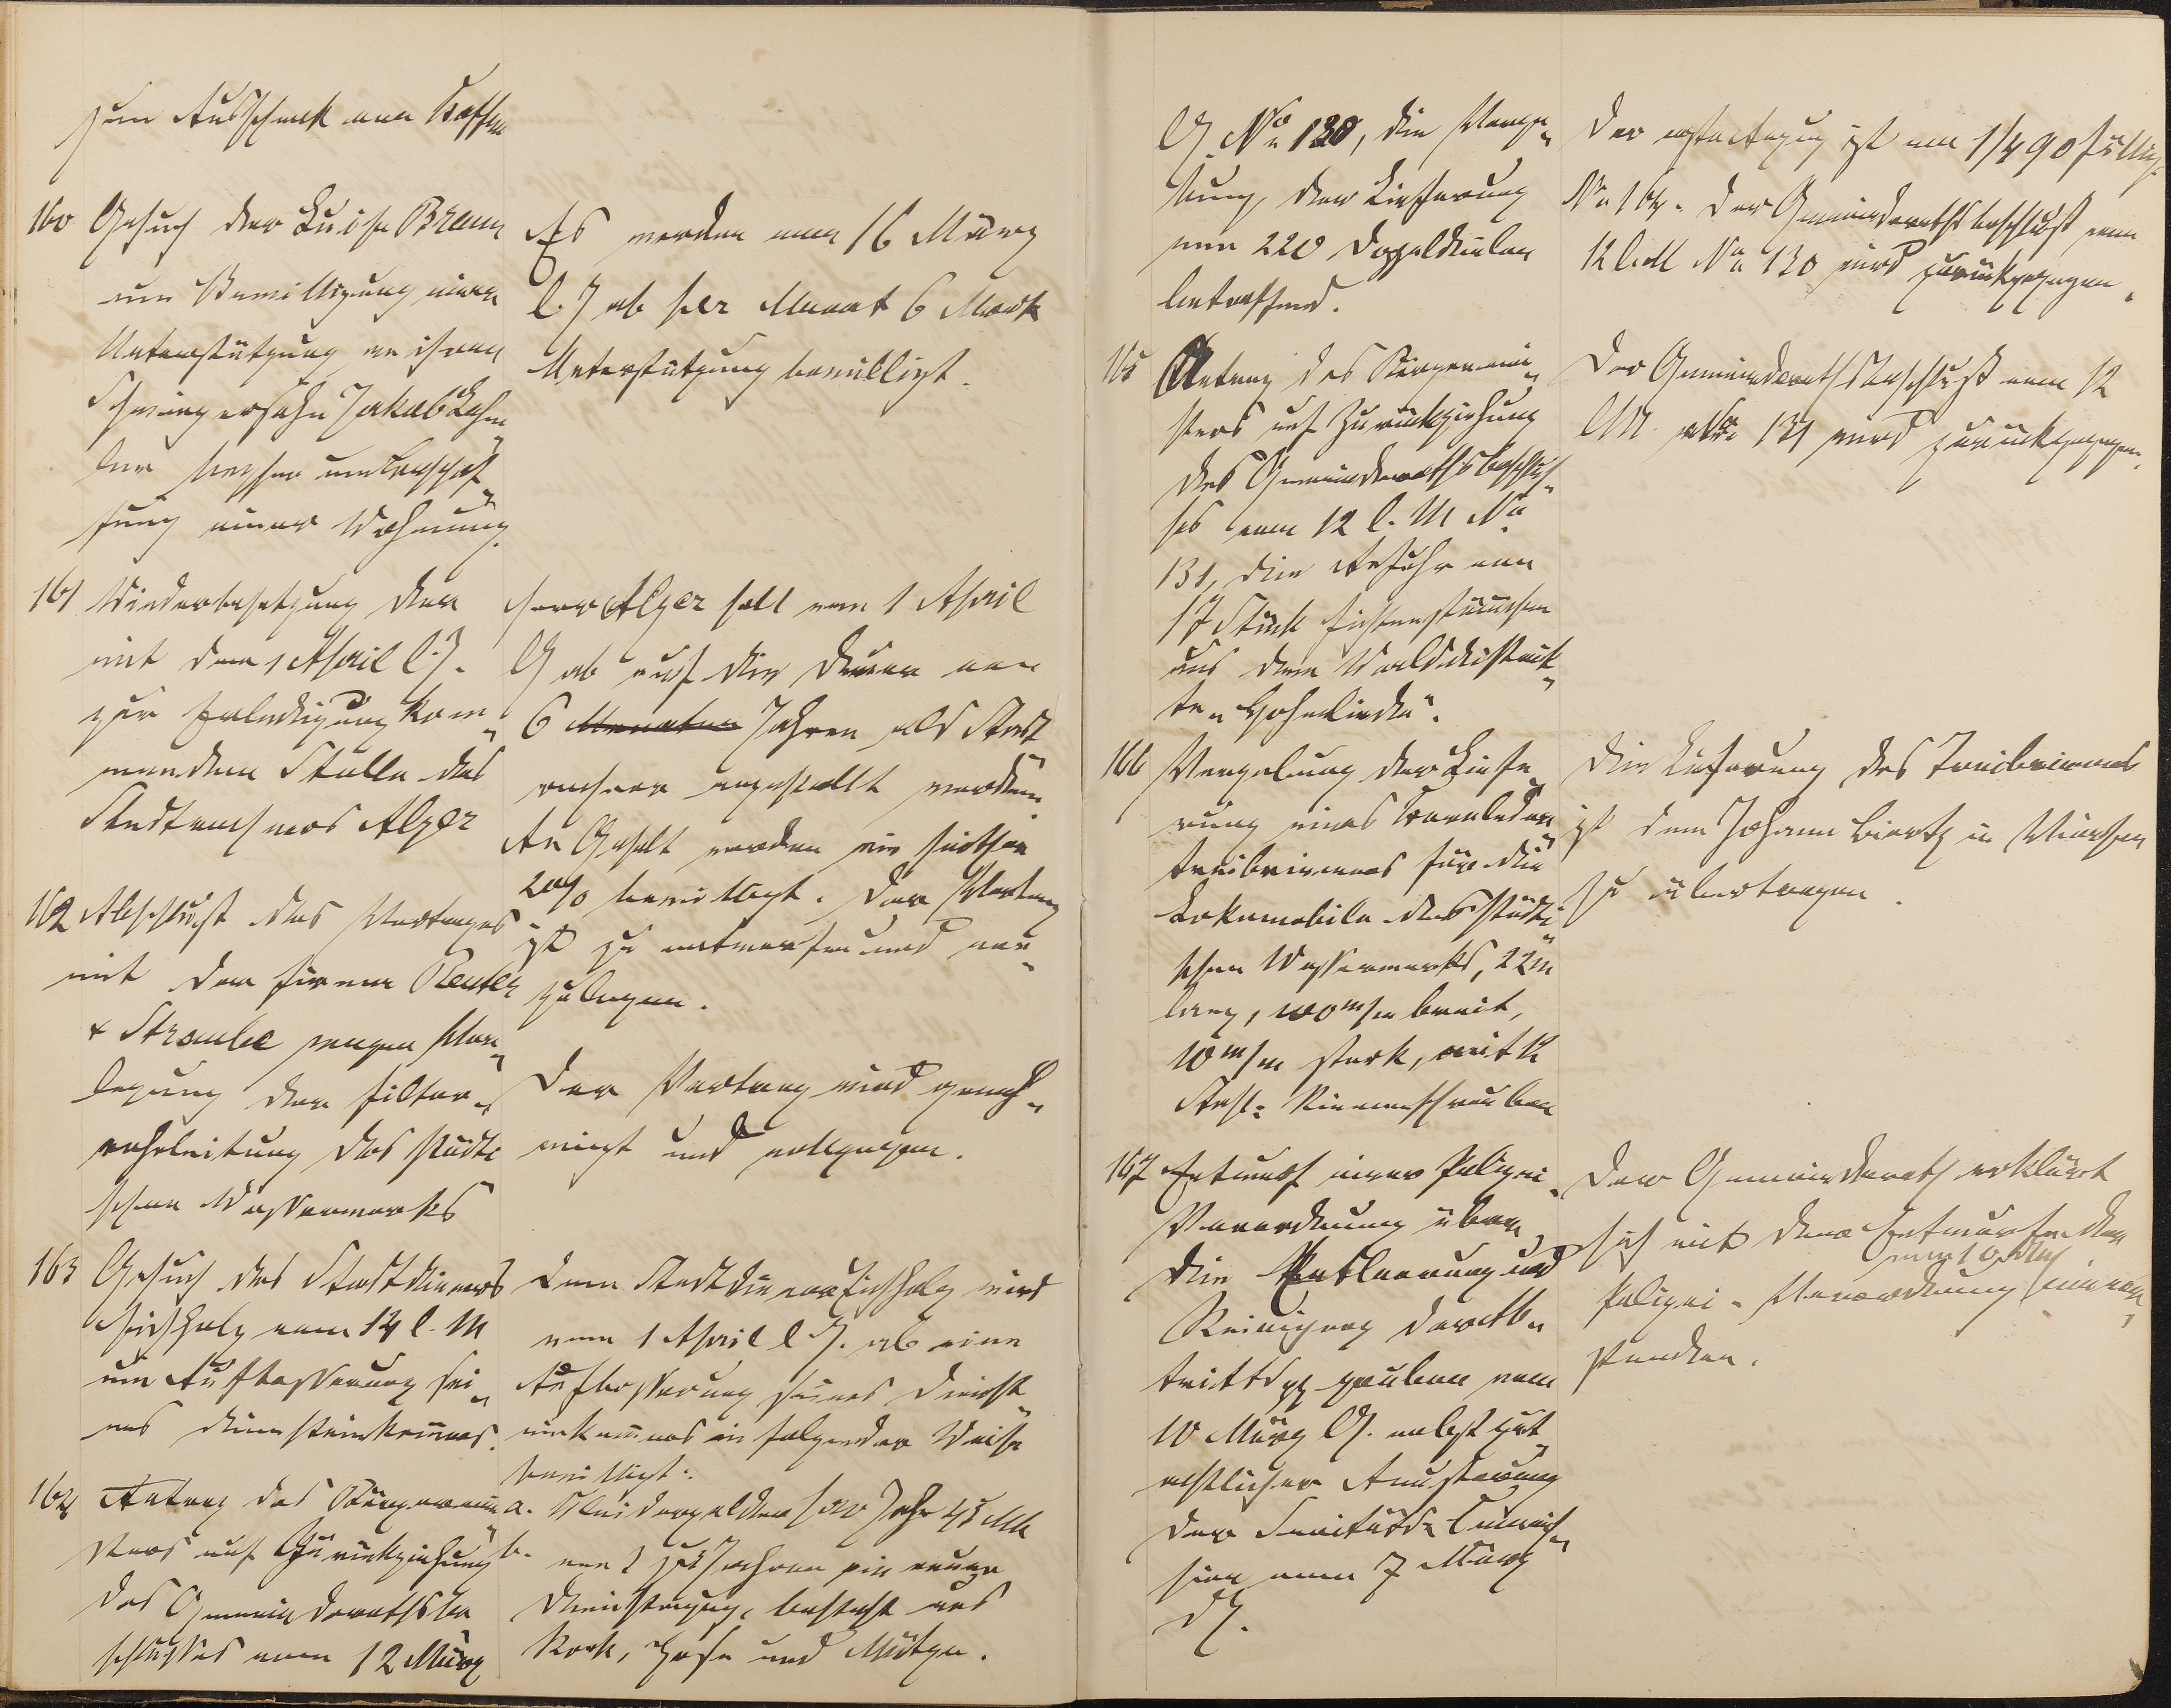 zum Ausschank von Kaffee
160 Gesuch der Luise Braun
um Bewilligung einer
Unterstützung an ihren
Schwiegersohn Jakob
einer Wohnung.
Es werden vom 16 März
l. J ab per Monat 6 Mark
Unterstützung bewilligt.
161 Wiederbesetzung der
mit dem 1 April l. J.
zur Erledigung kom„
menden Stelle des
Stadtrechners Alzer
Herr Alzer soll vom 1 April
l J ab auf die Dauer von
6 Monaten Jahren als Stadt„
rechner angestellt werden.
An Gehalt werden wie seither
bewilligt. Der Vertrag
ist zu entwerfen und vor„
zulegen.
162 Abschluss des Vertrages
mit der Firma Reuter
& Straube wegen Ver„
legung der Filter„
rohrleitung des städti
schen Wasserwerks
Der Vertrag wird geneh„
migt und vollzogen.
163 Gesuch des Stadtdieners
Eichholz vom 14 l. M
um Aufbesserung sei„
nes Diensteinkom̅ens.
Dem Stadtdiener Eichholz wird
vom 1 April l J. ab eine
Aufbesserung seines Dienst„
einkom̅ens in folgender Weise
bewilligt:
a. Kleidergelder pro Jahr 45 Mk
b. von 2 zu 2 Jahren ein neuer
Dienstanzug, besteht aus
Rock, Hose und Mütze.
164 Antrag des Bürgermei„
sters auf Zurückziehung
des Gemeinderathsbe
schlusses vom 12 März
l J. No 130, die Verge„
bung der Lieferung
von 220 Doppeldielen
betreffend.
Der Gemeinderathsbeschluß vom
12 l. M No 130 wird zurückgezogen.
165 Antrag des Bürgermei„
sters auf Zurückziehung
des Gemeinderathsbeschlus„
ses vom 12 l. M No
131, die Abfuhr von
17 Stück Fichtenstäm̅chen
aus dem Walddistrik„
te „Hohelinde“.
Der Gemeinderathsbeschluß vom 12
l M. No 131 wird zurückgezogen.
166 Vergebung der Liefe„
rung eines Kernleder„
treibriemens für die
Lokomobile des städti„
schen Wasserwerks, 22 m
lang, 100 m/m breit,
10 m/m stark, mit
Riemenschrauben
Die Lieferung des Treibriemens
ist dem Johann in
zu übertragen.
167 Entwurf einer Polizei„
Verordnung über
die Entleerung und
Reinigung der Ab„
trittsgruben vom
10 März l J. nebst gut„
achtlicher Aeusserung
der Sanitäts Commis„
sion vom 7 März
d J.
Der Gemeinderath erklärt
sich mit dem Entwurfe der
vom 10 März
Polizei-Verordnung einver„
standen.